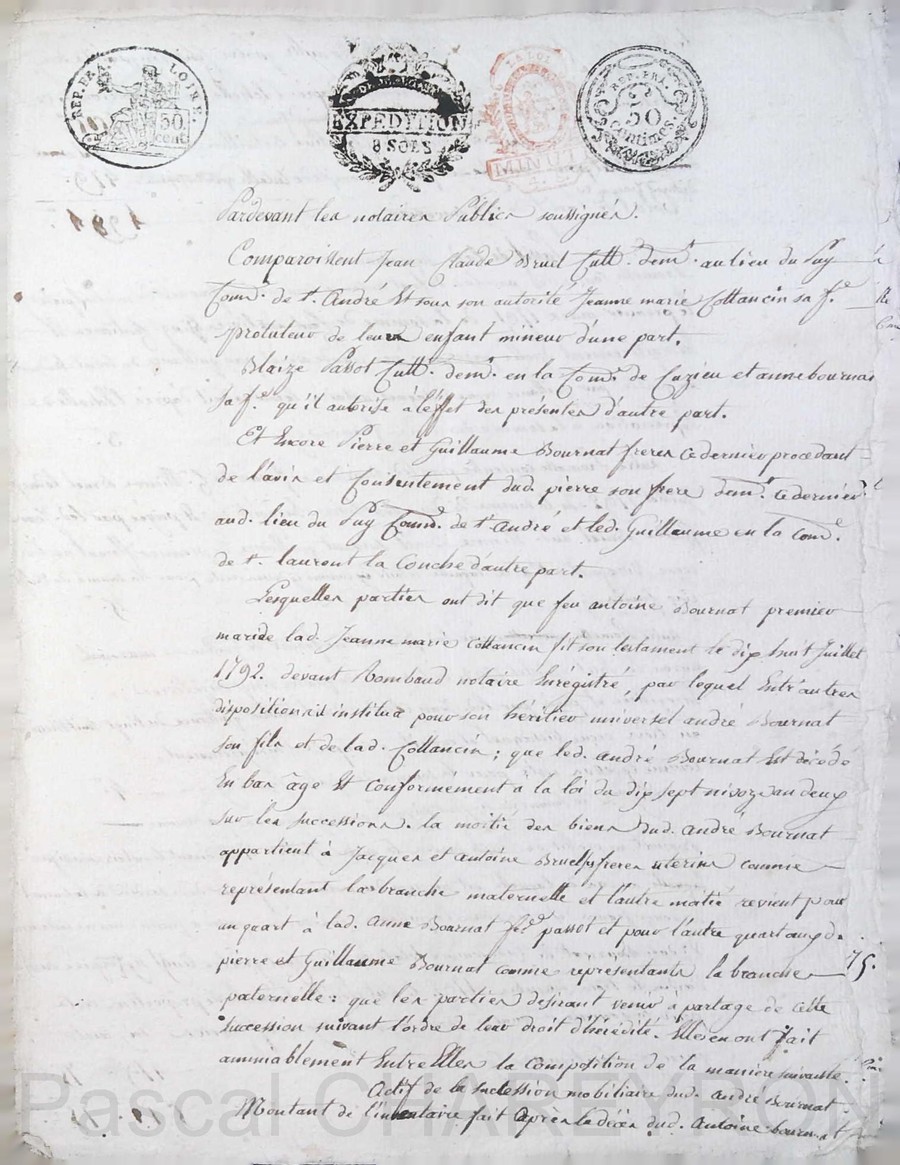 REP. FRA. LOIRE.
50 cent.
EXPEDITION
8 SOLS
LA LOI
MINUTE
REP. FRA.
50
Centimes.
Pardevant les notaires Publics soussignés.
Comparoissent Jean Claude Bruel Cultr. demt. au lieu du Puy
Comne. de st. André Et sous son autorité Jeanne marie Collancin sa fe.
protuteur de leurs enfant mineur d'une part.
Blaize Passot Cultr. demt. en la Comne. de Cuzieu et anne bournat
sa fe. qu'il autorise à l'effet des présentes d'autre part.
Et Encore Pierre et Guillaume Bournat freres ce dernier procédant
de l'avis et Consentement dud. pierre son frere demt. ce dernier
aud. lieu du Puy Comne. de st. André et led. Guillaume en la comne.
de st. laurent la Conche d'autre part.
Lesquelles parties ont dit que feu antoine Bournat premier
mari de lad. Jeanne marie Collancin fit son testament le dix huit Juillet
1792. devant Rombaud notaire Enrégistré, par lequel Entr'autres
dispositions il institua pour son héritier universel andré Bournat
son fils et de lad. Collancin; que led. andré Bournat Est décédé
En bas âge Et conformément a la loi du dix sept nivoze an deux
sur les successions. la moitié des biens dud. andré Bournat
appartient à Jacques et antoine Bruel freres uterins comme
représentant la branche maternelle et l'autre moitié revient pour
un quart à lad. anne Bournat fe. passot et pour l'autre quart auxd.
pierre et Guillaume Bournat comme représentants la branche
paternelle: que les parties desirant venir à partage de cette
succession suivant l'ordre de leur droit d'hérédité. Elles en ont fait
ammiablement Entre Elles la composition de la maniere suivante.
Actif de la succession mobiliaire dud. André Bournat
Montant de l'inventaire fait Après le décès dud. Antoine bournat
75.
Pascal CHAREYRON